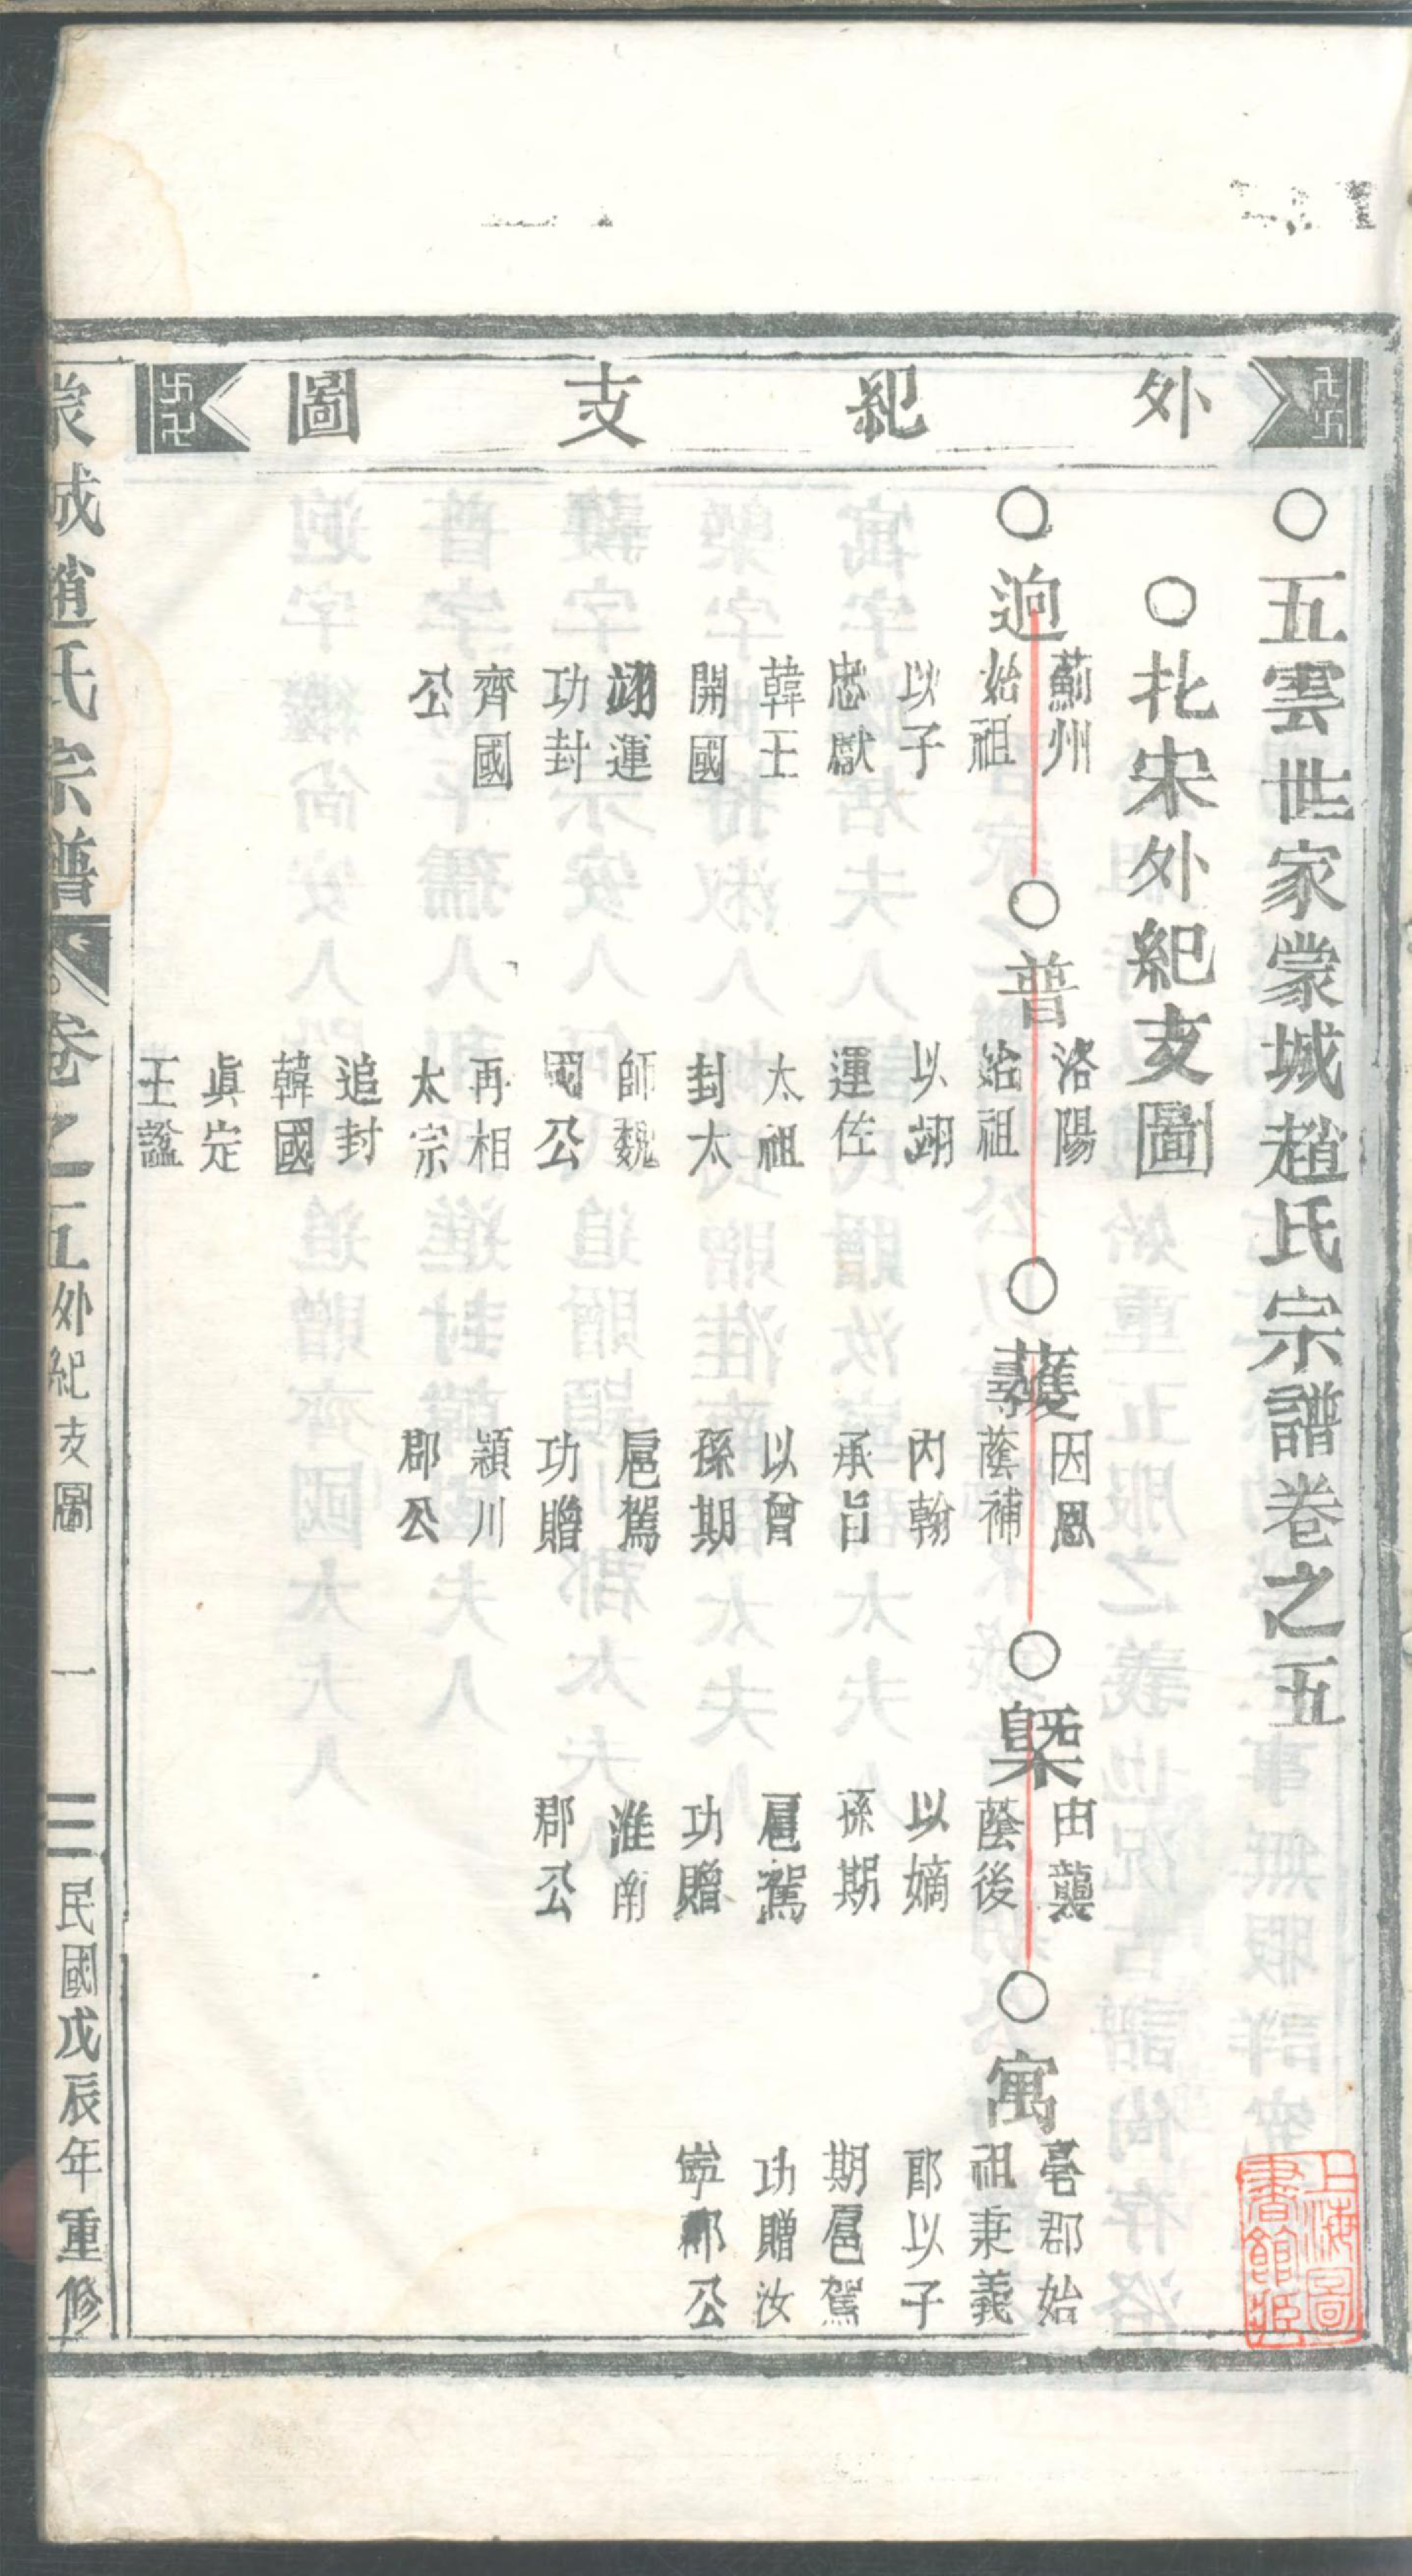 外紀支圖
○五雲世家蒙城趙氏宗譜卷之五
○北宋外紀支圖
○迥
薊州
始祖
以子
忠獻
韓王
開國
翊運
功封
齊國
公
○普
洛陽
始祖
以翊
運佐
太祖
封太
師魏
國公
再相
太宗
追封
韓國
眞定
王諡
○
因恩
蔭補
內翰
承旨
以曾
孫期
扈駕
功贈
潁川
郡公
○
由襲
蔭後
以嫡
孫期
扈駕
功贈
淮南
郡公
○寓
亳郡始
祖秉義
郎以子
期扈駕
功贈汝
寧郡公
蒙城趙氏宗譜
卷之五
外紀支圖
一
三
民國戊辰年重修
上海圖
書館